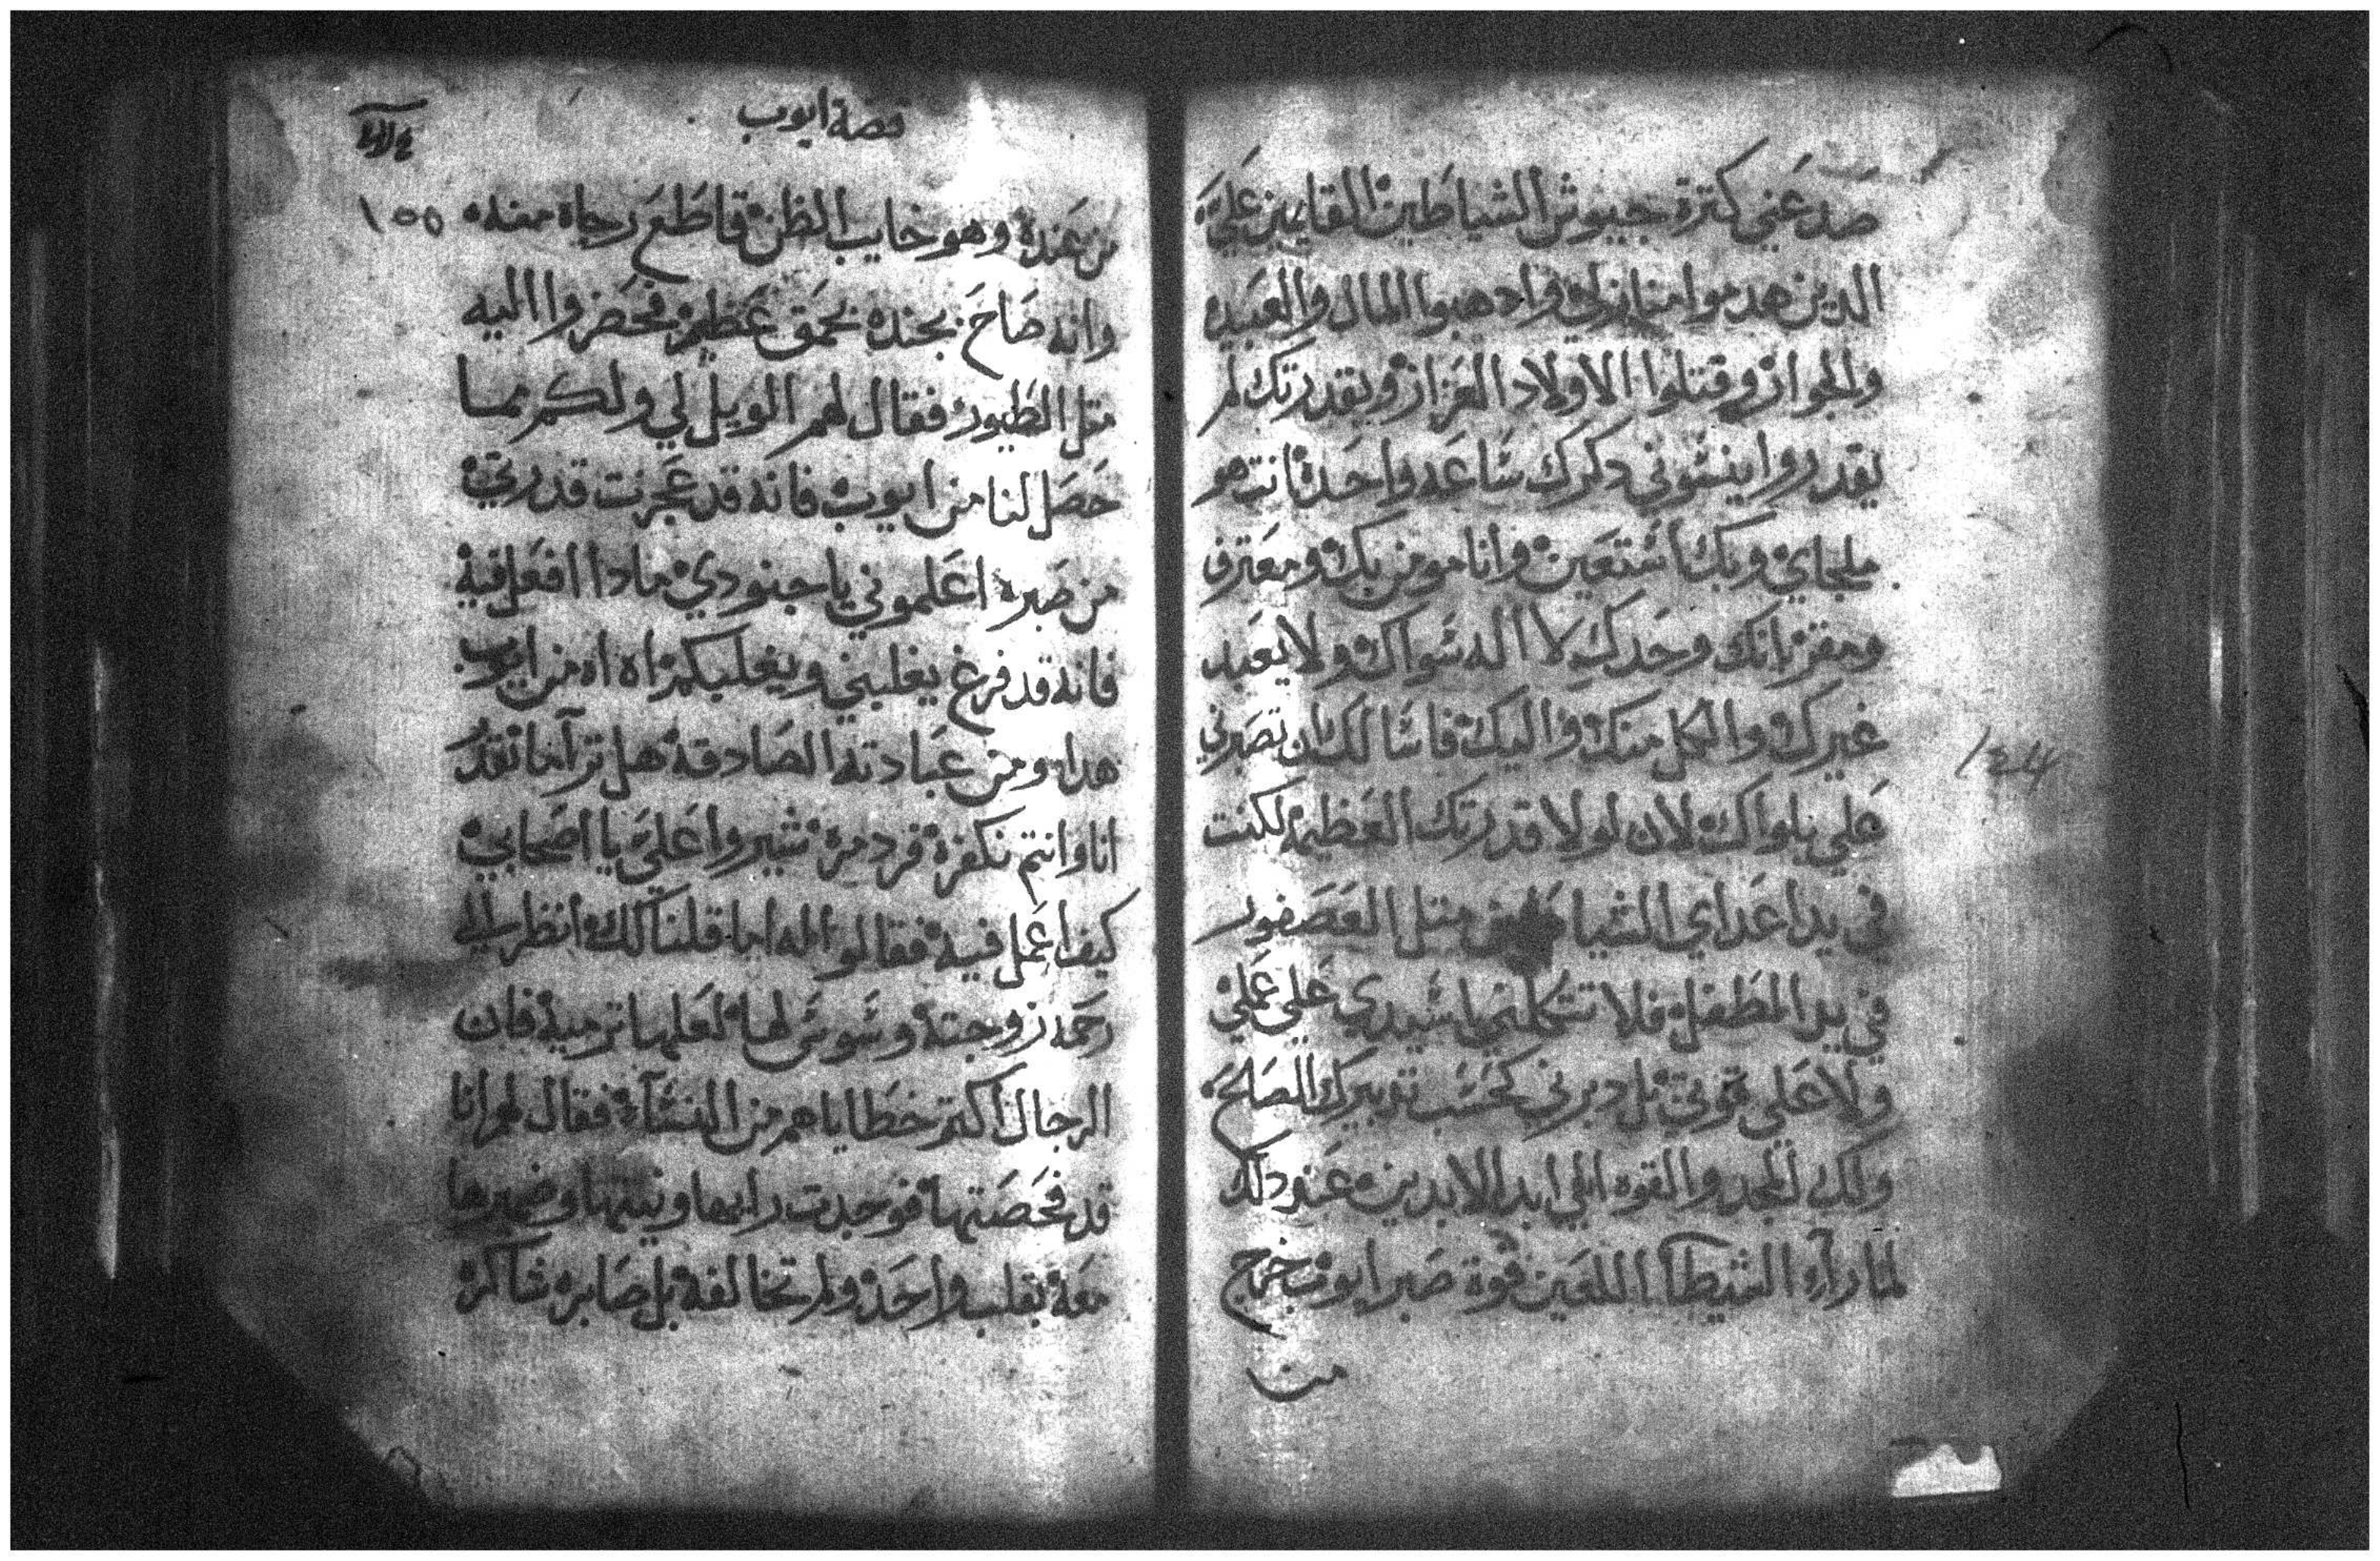 صد عني كترة جيوش الشياطين القايمين علي
الدين هدموا منازلي واد هبوا المال والعبيد
والجوار وقتلوا الاولاد العزاز وبقدرتك لم
يقدروا ينسوني دكرك ساعه واحده انت هو
ملجاي وبك استعين وانا مومن بك ومعترف
ومقر بانك وحدك لا اله سواك ولا يعبد
غيرك والكل منك واليك فاسالك ان تصبرني
علي بلواك لان لولا قدرتك العظيمه لكنت
في يد اعداي الشياطين متل العصفور
في يد الطفل فلا تتكلني ياسيدي علي عملي
ولا علي قوتي بل دبرني كحسب تدبيرك الصالح
ولك المجد والقوه الي ابد الابدين عند دلك
لما راء الشيطان اللعين قوة صبر ايوب خرج
من
1214
قصة ايوب
155
من عنده وهو خايب الظن قاطع رجاه منه
وانه صاح بجنده بحمق عظيم فحضروا اليه
متل الطيور فقال لهم الويل لي ولكم مما
حصل لنا من ايوب فانه قد عجزت قدرتي
من صبره اعلموني يا جنودي مادا افعل فيه
فانه قد فرغ يغلبني ويغلبكم اه اه من ايوب
هدا ومن عبادته الصادقه هل ترآ ما نقدر
انا وانتم نكفره فرد مره شيروا علي يا اصحابي
كيف اعمل فيه فقالو اله اما قلنا لك انظر الي
رحمه زوجته وسوس لها لعلها ترميه فان
الرجال اكتر خطاياهم من النسآء فقال لهم انا
قد فحصتها فوجدت رايها ونيتها وضميرها
معه بقلب واحد ولم تخالفه بل صابره شاكره